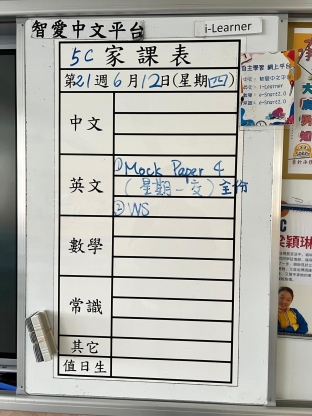 智愛中文平台
i-Learner
5C 家課表
第21週6月12日(星期四)
自主學習 網上平台
中文
英文
①Mock Paper 4
(星期一交)全份
②WS
數學
常識
其它
值日生